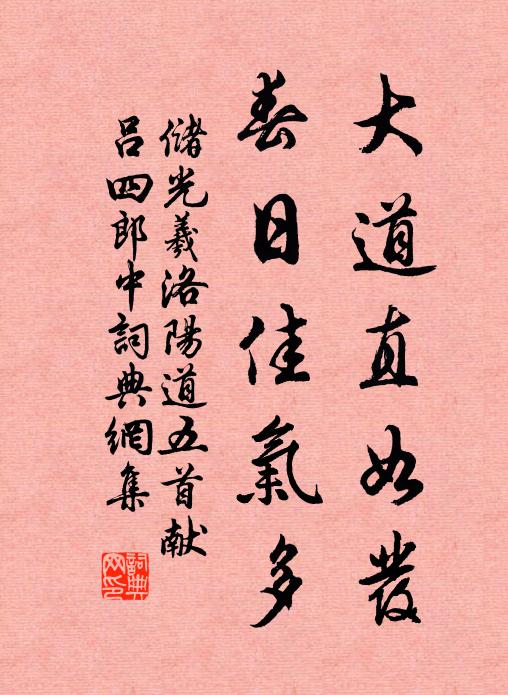 大道直如發
春日佳氣多
儲光羲洛陽道五首献
呂四郎中詞典網集
詞典网印